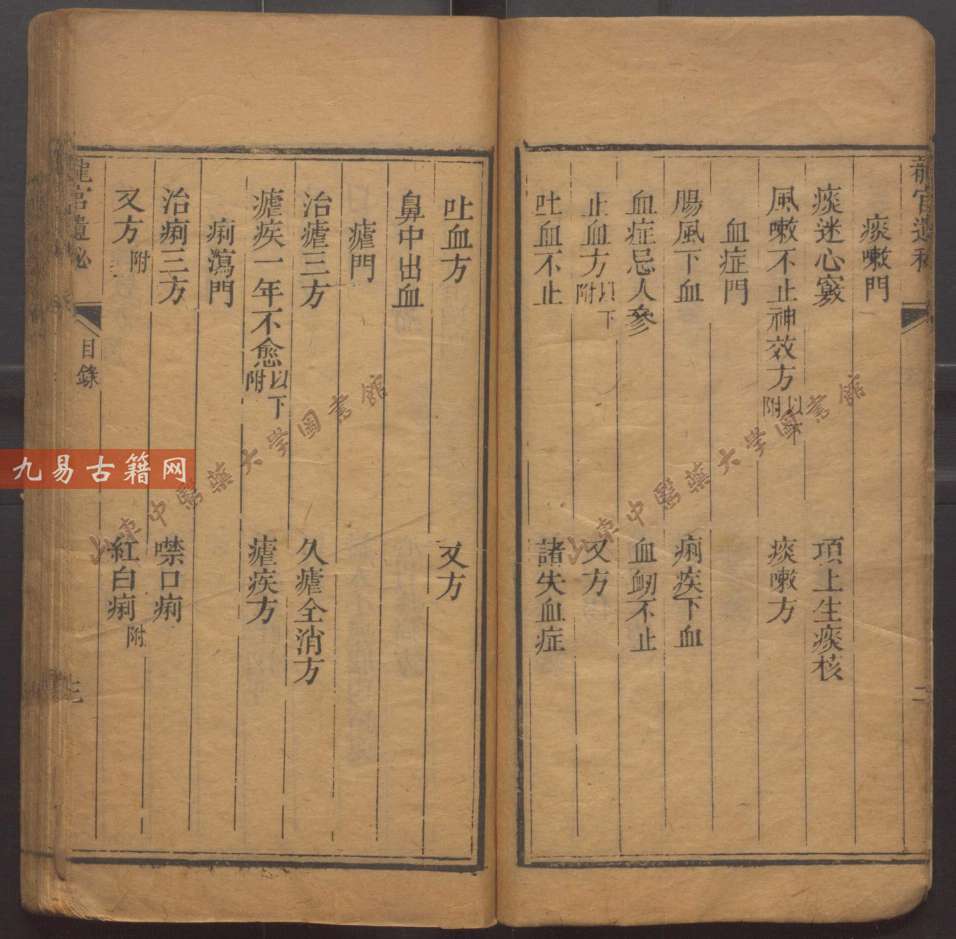 痰嗽門
痰迷心竅　項上生痰核
風嗽不止神效方以下附　痰嗽方
血症門
腸風下血　痢疾下血
血症忌人參　血衂不止
止血方以下附　又方
吐血不止　諸失血症
吐血方　又方
鼻中出血
瘧門
治瘧三方　久瘧全消方
瘧疾一年不愈以下附　瘧疾方
痢瀉門
治痢三方　噤口痢
又方附　紅白痢附
龍宮遺秘
目錄
九易古籍网
中醫藥大学図書館
中醫藥大学図書館